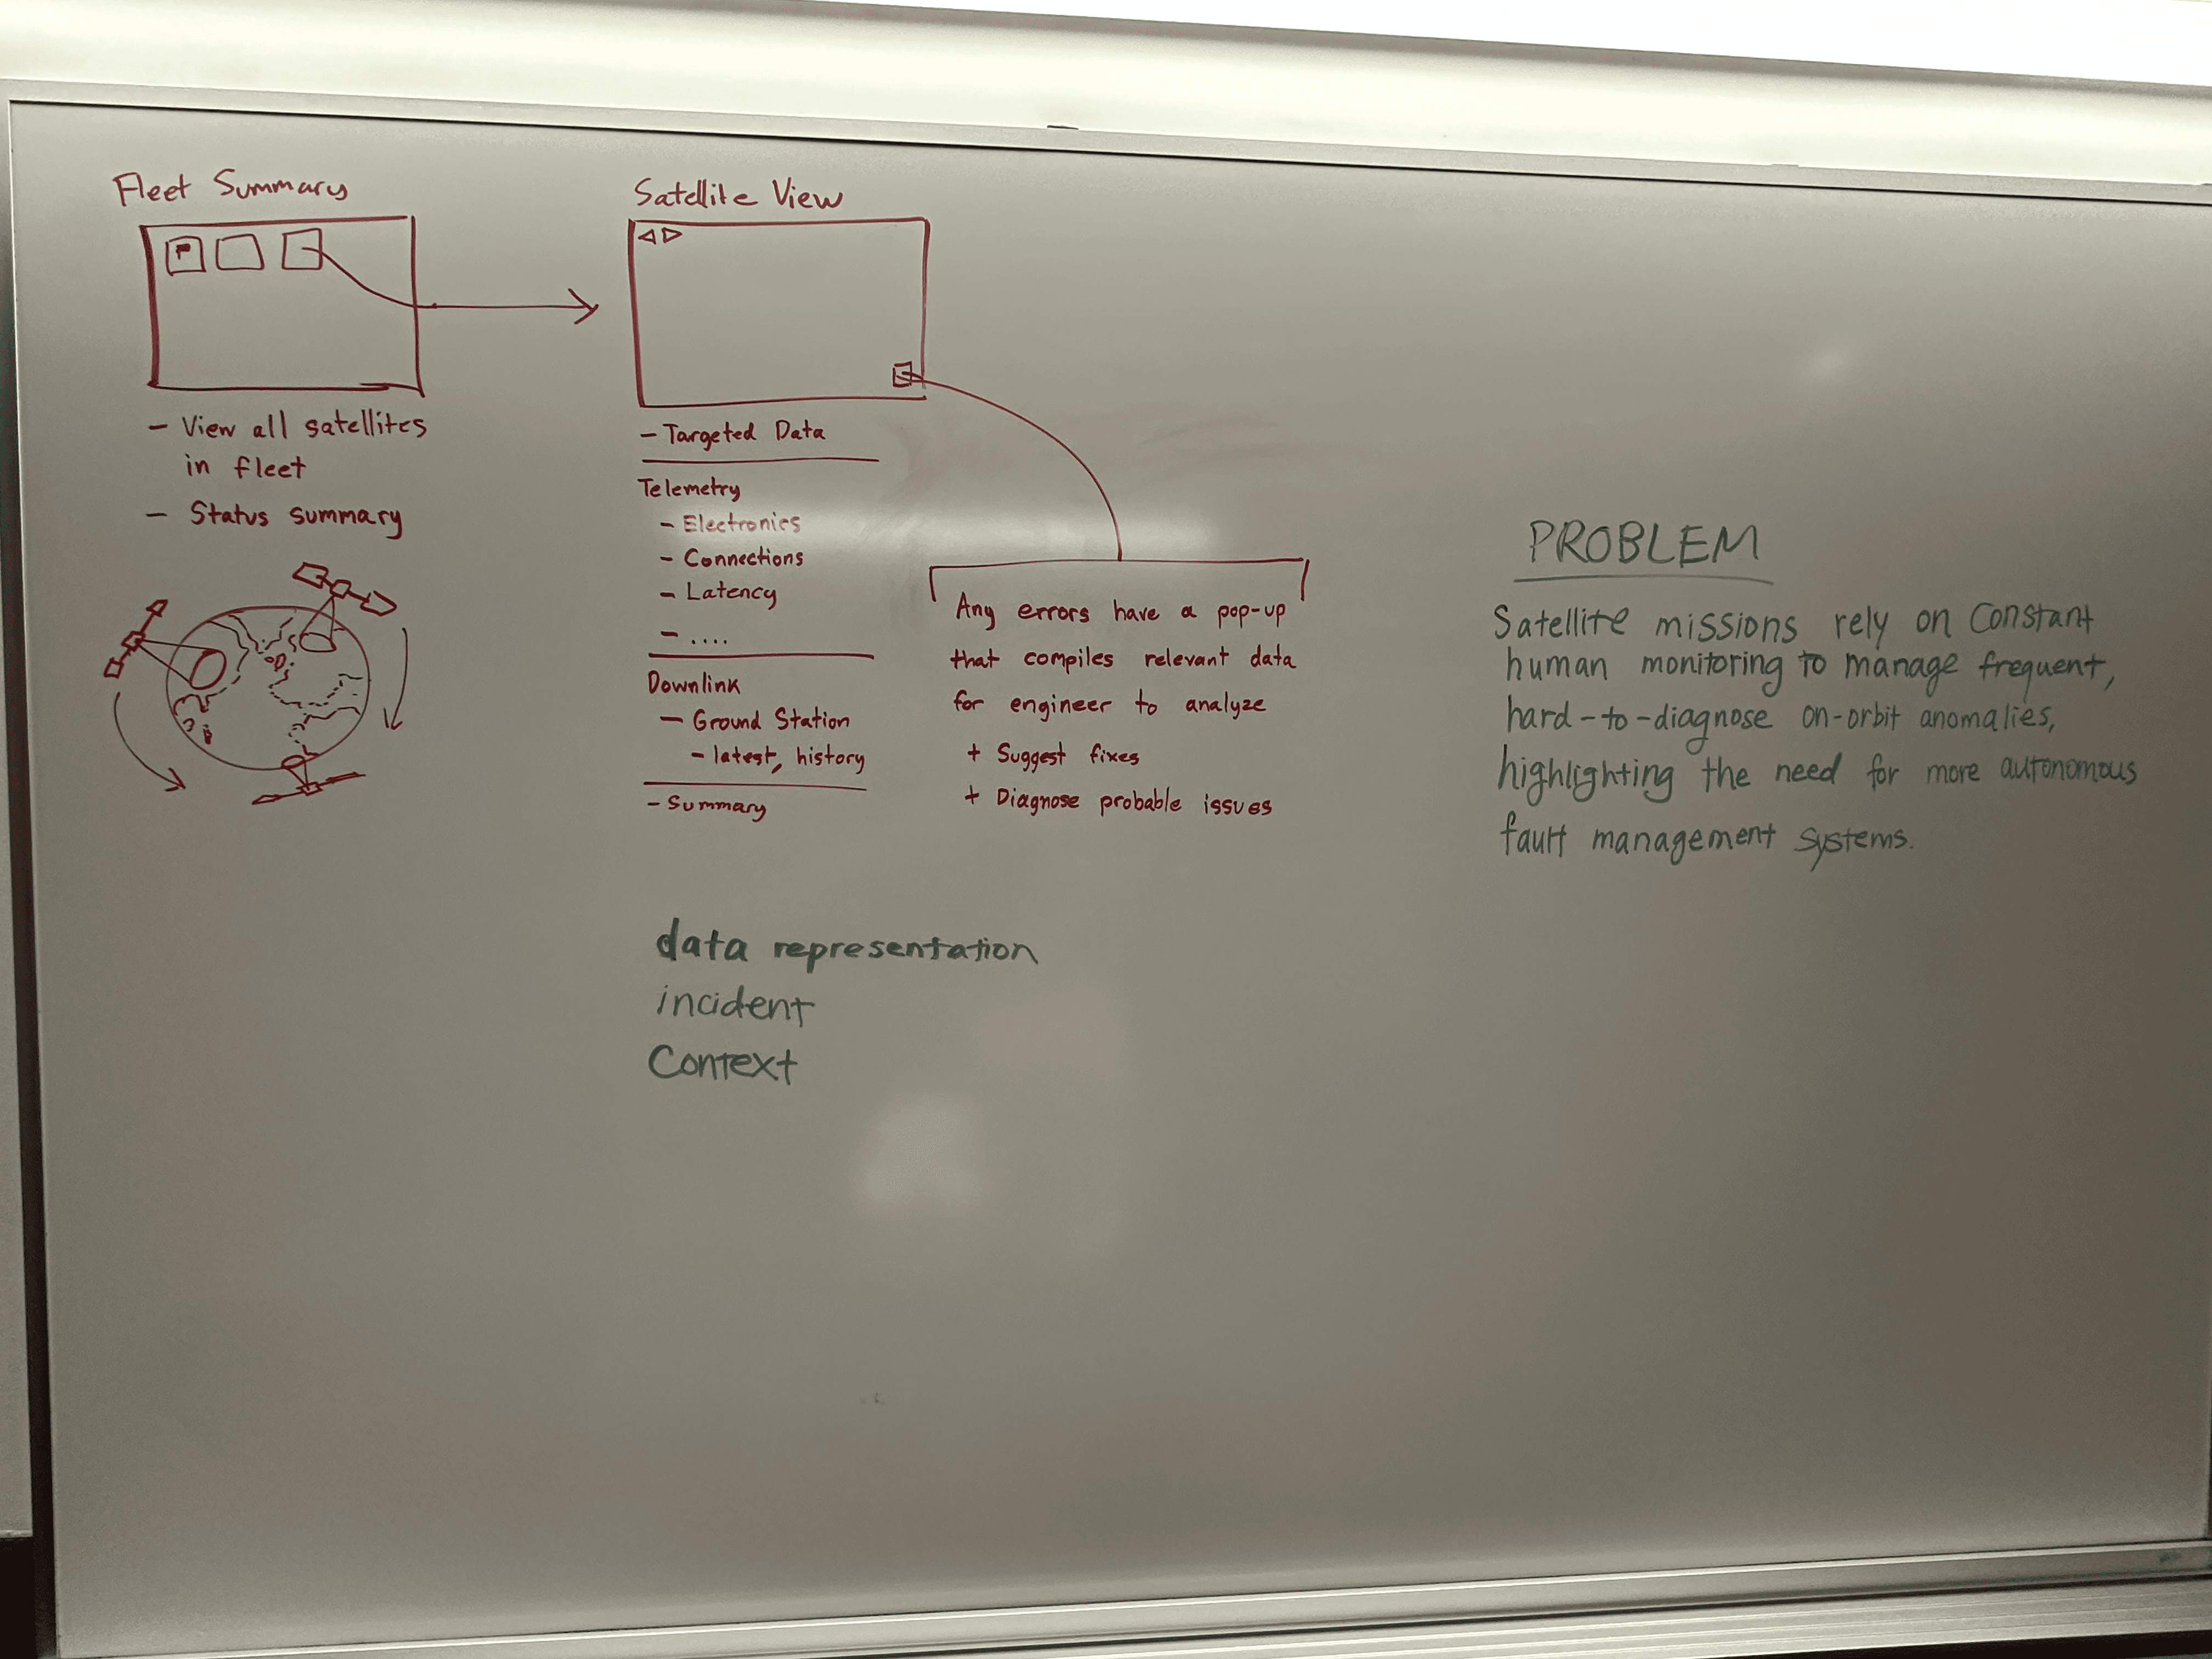 Fleet Summary
- View all satellites
in fleet
- Status summary
Satellite View
- Targeted Data
Telemetry
- Electronics
- Connections
- Latency
- ....
Downlink
- Ground Station
- latest, history
- Summary
Any errors have a pop-up
that compiles relevant data
for engineer to analyze
+ Suggest fixes
+ Diagnose probable issues
data representation
incident
Context
PROBLEM
Satellite missions rely on Constant
human monitoring to manage frequent,
hard-to-diagnose on-orbit anomalies,
highlighting the need for more autonomous
fault management systems.